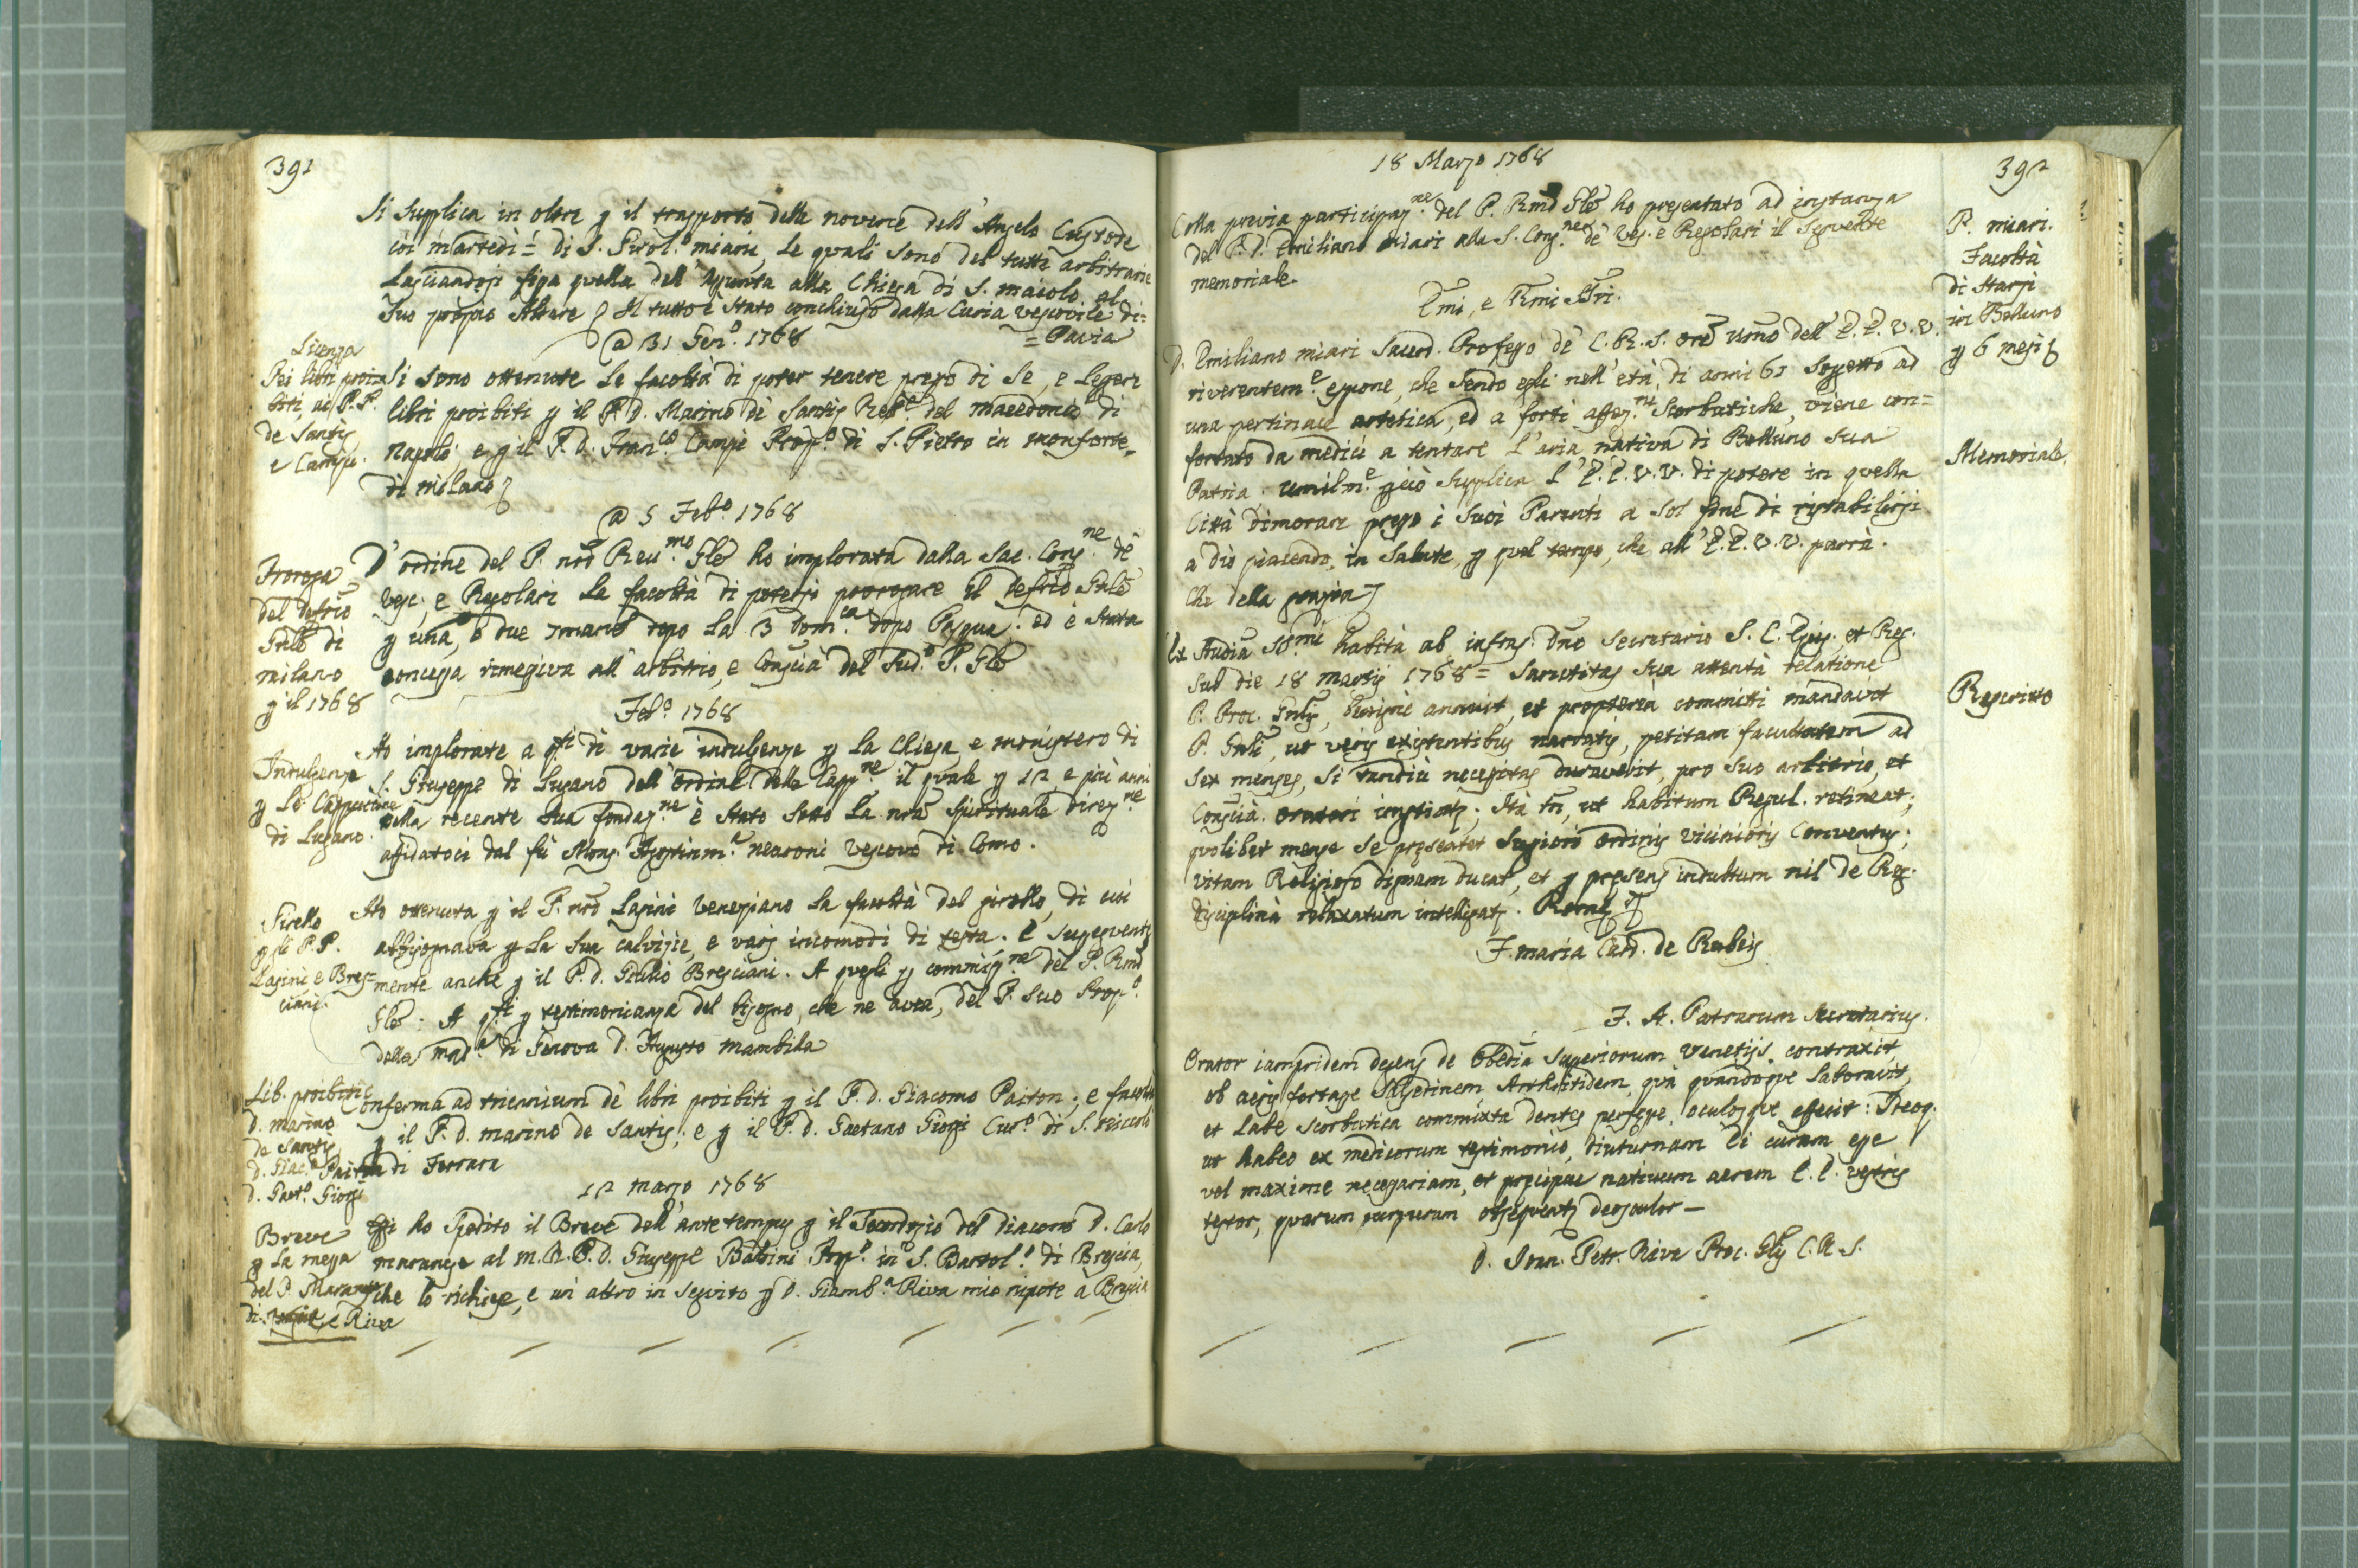 391
Si supplica in oltre p il trasporto delle novene dell' Angelo Custode
coi martedì = di S. Girol.º miani, le quali sono del tutto arbitrarie
Lasciandosi fissa quella dell' Assunta alla Chiesa di S. maiolo al
Suo proprio Altare. Il tutto è stato conchiuso dalla Curia vescovile di =
= Pavia
@ 31 Gen.º 1768
Licenza
Pei libri proi=
biti, ai P.P.
de Santis,
e Campi.
Si sono ottenute le facoltà di poter tenere presso di se, e legere
libri proibiti p il P. d. Marino de Santis Rett.e del macedonio di
Napoli; e p il P. d. Fran.co Campi Prep.º di S. Pietro in monforte
di milano
@ 5 Feb.º 1768
Proroga
del defrio
Gnle di
milano
p il 1768
D' ordine del P. nro Reu.mo Gle ho implorata dalla Sac. Cong.ne de
Vesc. e Regolari la facoltà di potersi prorogare il defrio Gnle
p una, o due 7mane dopo la 3 Dom.ca dopo Pasqua: ed è stata
concessa rimessiva all' arbitrio, e Conscia del Sud.º P. Gle
Feb.º 1768
Indulgenze
p le Cappuccine
di Lugano.
Ho implorate a pti di varie indulgenze p la Chiesa, e monistero di
S. Giuseppe di Lugano dell' ordine delle Capp.ne il quale p 12 e più anni
nella recente sua fondaz.ne è stato sotto la nra spirituale direz.ne
affidatoci dal fù Mons. Agostinm.a nearoni vescovo di Como.
Girello
p li P.P.
Lasini e Bres=
ciani.
Ho ottenuta p il P. nro Lasini Veneziano la facoltà del girello, di cui
abbisognava p la sua calvizie, e varj incomodi di testa. E susseguente
mente anche p il P. d. Giulio Bresciani. A quegli p commiss.ne del P. Rmo
Gle: A qsti p testimonianza del bisogno, che ne avea, del P. suo Prep.º
della mad.a di Genova D. Augusto mambila
Lib. proibiti
d. marino
de Santis
d. Giac.º Paiton
d. Gaet.º Giorgi
Conferma ad triennium de libri proibiti p il P. d. Giacomo Paiton; e facoltà
p il P. d. marino de Santis; e p il P. d. Gaetano Giorgi Cur.º di S. Niccolò
di Ferrara
12 marzo 1768
Breve
p la messa
del P. Maranese
di e Riva
Oggi ho spedito il Breve dell' ante tempus p il Sacerdozio del diacono D. Carlo
maranese al m. R. P. d. Giuseppe Balbini Prep.º in S. Bartol.º di Brescia,
che lo richiese, e un' altro in seguito p D. Giamb.a Riva mio nipote à Brescia
392
18 Marzo 1768
P. miari.
Facoltà
di starsi
in Belluno
p 6 mesi
Colla previa participaz.ne del P. Rmo Gle ho presentato ad instanza
del P. D. Emiliano miari alla S. Cong.ne de Ves. e Regolari il seguente
memoriale.
Emi, e Rmi SSri.
D. Emiliano miari Sacerd. Professo de C. R. S. ore umo dell' E.E. V.V.
riverentem.e espone, che sendo egli nell' età di anni 61 soggetto ad
una pertinace artetica, ed a forti affez.ni Scorbutiche, viene con=
fortato da medici a tentare l' aria nativa di Belluno sua
Patria. Umilm.e pciò supplica l' E.E. V.V. di potere in quella
Città dimorare presso i suoi Parenti a sol fine di ristabilirsi
a dio piacendo, in salute, p quel tempo, che all' E.E. V.V. parrà.
Che della grazia
Memoriale.
Ex Audia SS.mi habita ab infras. Dno Secretario S. C. Epis. et Reg.
sub die 18 martij 1768 = Sanctitas sua attentà relatione
P. Proc. Gnlis, benignè annuit, et proptereà commicti mandavit
P. Gnli, ut veris existentibus narratis, petitam facultatem ad
sex menses, si tandiù necessitas duraverit, pro suo arbitrio, et
Conscià. Oratori impertiatr; Ità tn, ut habitum Regul. retineat;
quolibet mense se presentet Supriori ordinis vicinioris Conventus;
vitam Religioso dignam ducat, et p presens indultum nil de Reg.
disciplinà relaxatum intelligatr. Rome
Rescritto
F. maria Card. de Rubeis
F. A. Patrarum Secretarius.
Orator iampridem degens de obedia superiorum Venetijs contraxit,
ob aeris fortasse salsedinem Arthritidem, quà quandoque laboravit,
et labe scorbutica commixta dentes persepe, oculosque afficit: Ideoq.
ut habeo ex medicorum testimonio, diuturnam ei curam esse
vel maxime necessariam, et precipue nativum aerem E. E. vestris
testor, quarum purpuram obsequenter deosculor —
D. Ioan. Petr. Riva Proc. Glis C. R. S.